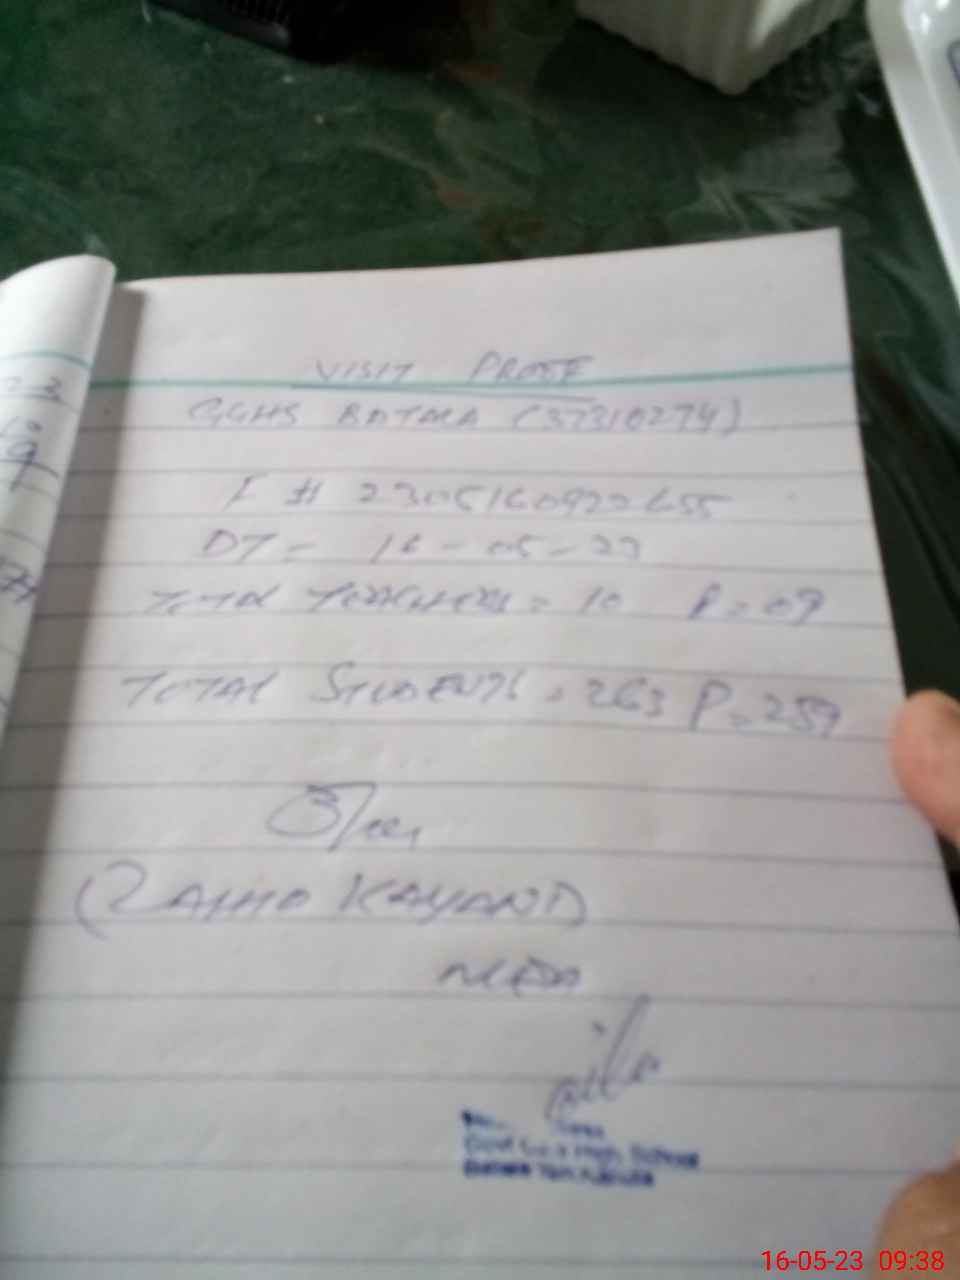 VISIT PROOF
GGHS BATALA (37310274)
I # 2305160922655
DT = 16-05-23
TOTAL TEACHERS = 10 P = 09
TOTAL STUDENTS = 263 P = 259
(ZAHID KAYANI)
MEA
Govt Girls High School
16-05-23 09:38